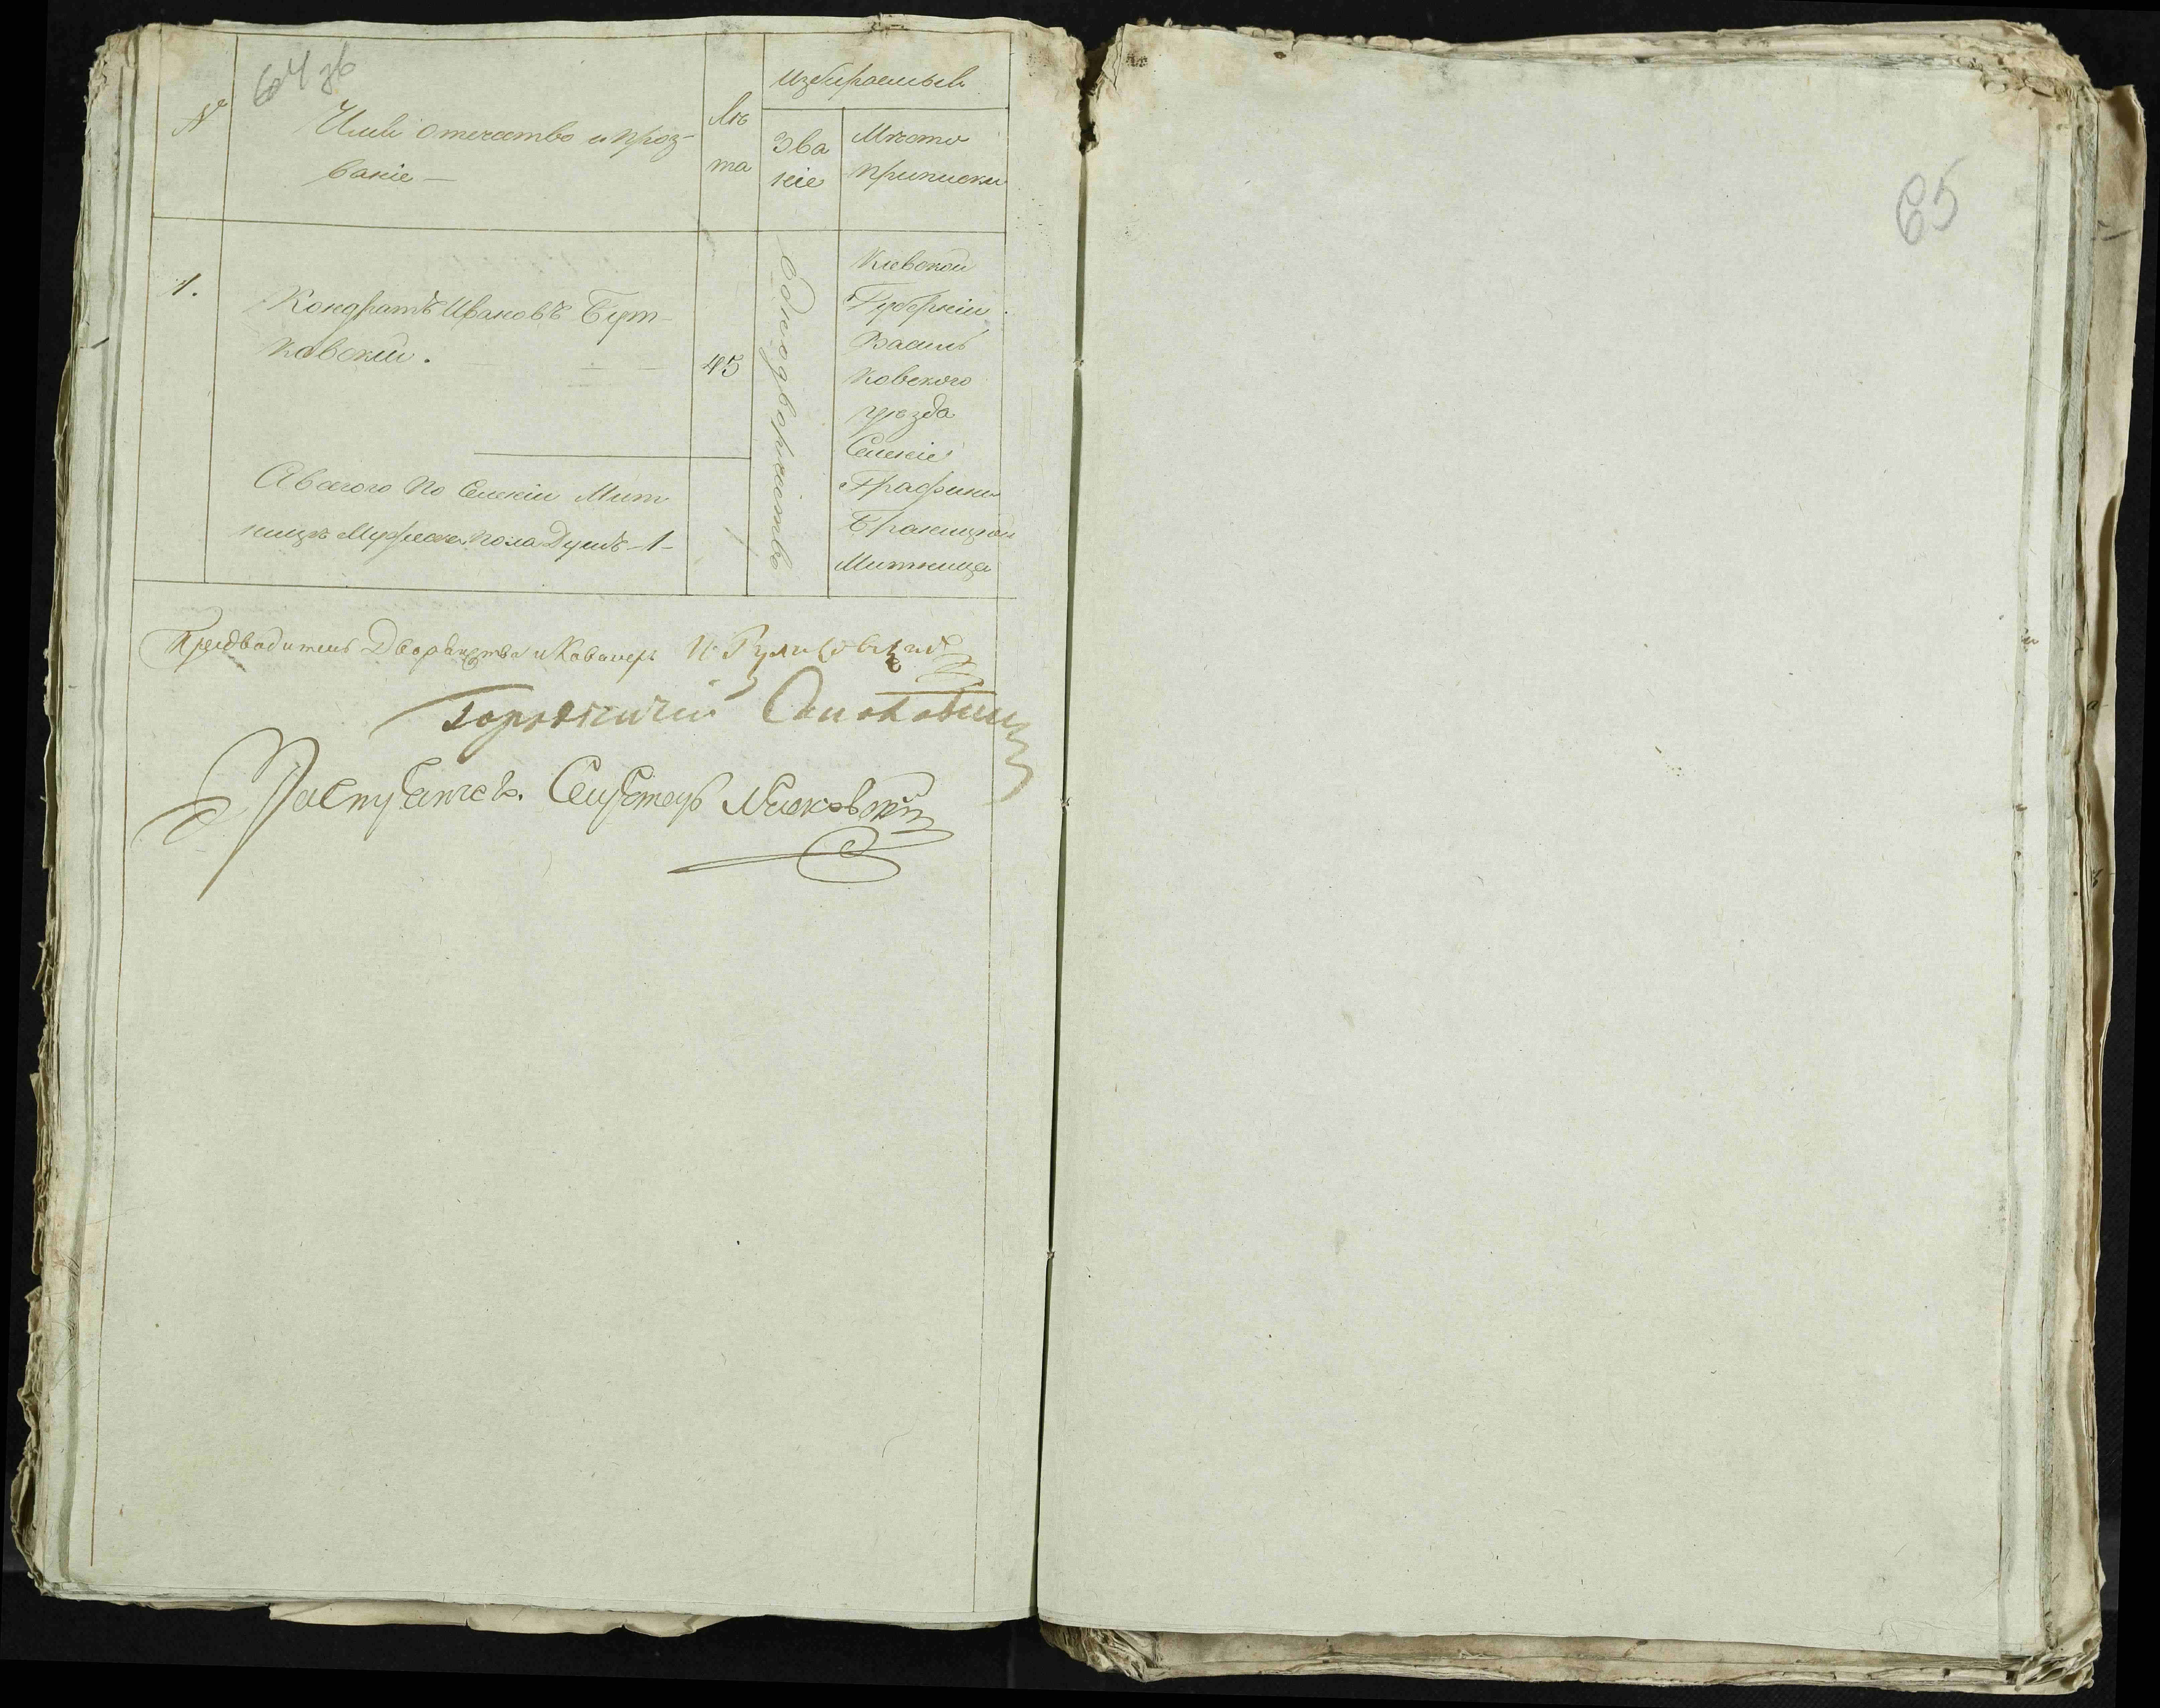 64 зв
№
Имя отечество и проз-
ваніе —
Лѣ
та
избираемыя
Зва
ніе
Мѣсто
приписки
1.
Кондратъ Ивановъ Бут-
ковскій.
45
Однодворчество
Кіевской
Губерніи
Василь
ковского
уѣзда
Селеніе
Графини
Браницкой
Митница
А всего по Селенію Мит
ницѣ Мужеска пола Душъ -1-
Предводитель Дворянства и Кавалеръ
Городничій
Секретарь
65